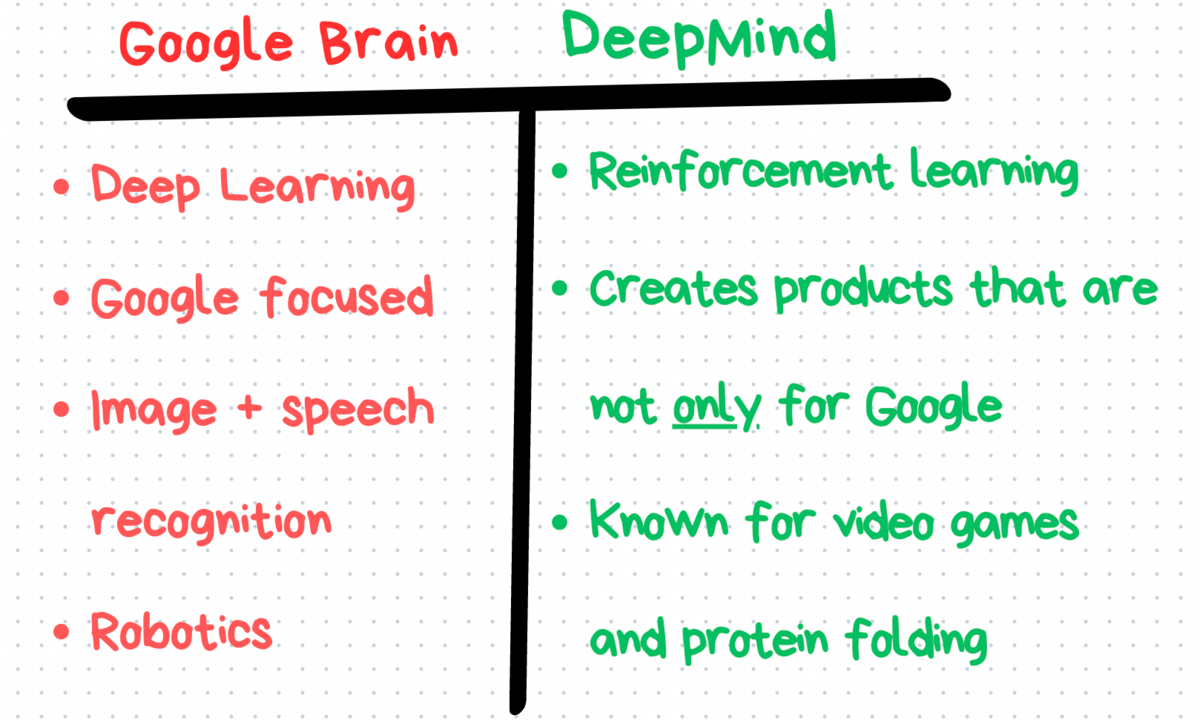 Google Brain
DeepMind
• Deep Learning
• Google focused
• Image + speech
recognition
• Robotics
• Reinforcement learning
• Creates products that are
not only for Google
• Known for video games
and protein folding